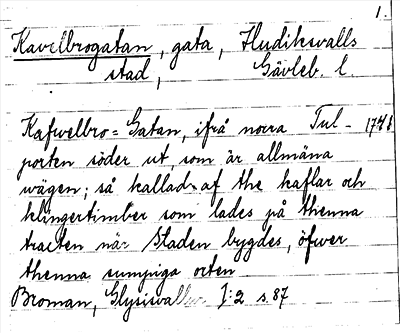 1.
Kavelbrogatan, gata, Hudiksvalls
stad, Gävleb. l.
Kafwelbro=Gatan, ifrå norra Tul-
porten söder ut, som är allmäna
wägen; så kallad af the kaflar och
klingertimber som lades på thenna
tracten när Staden bygdes, öfwer
thenna sumpiga orten
Broman, I:2 s. 87